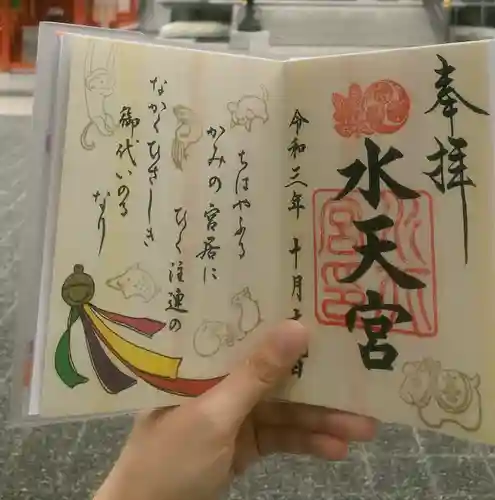 奉拝
水天宮
令和三年 十月十
ちはやふる
かみの宮居に
ひく注連の
なかくひさしき
御代いのる
なり